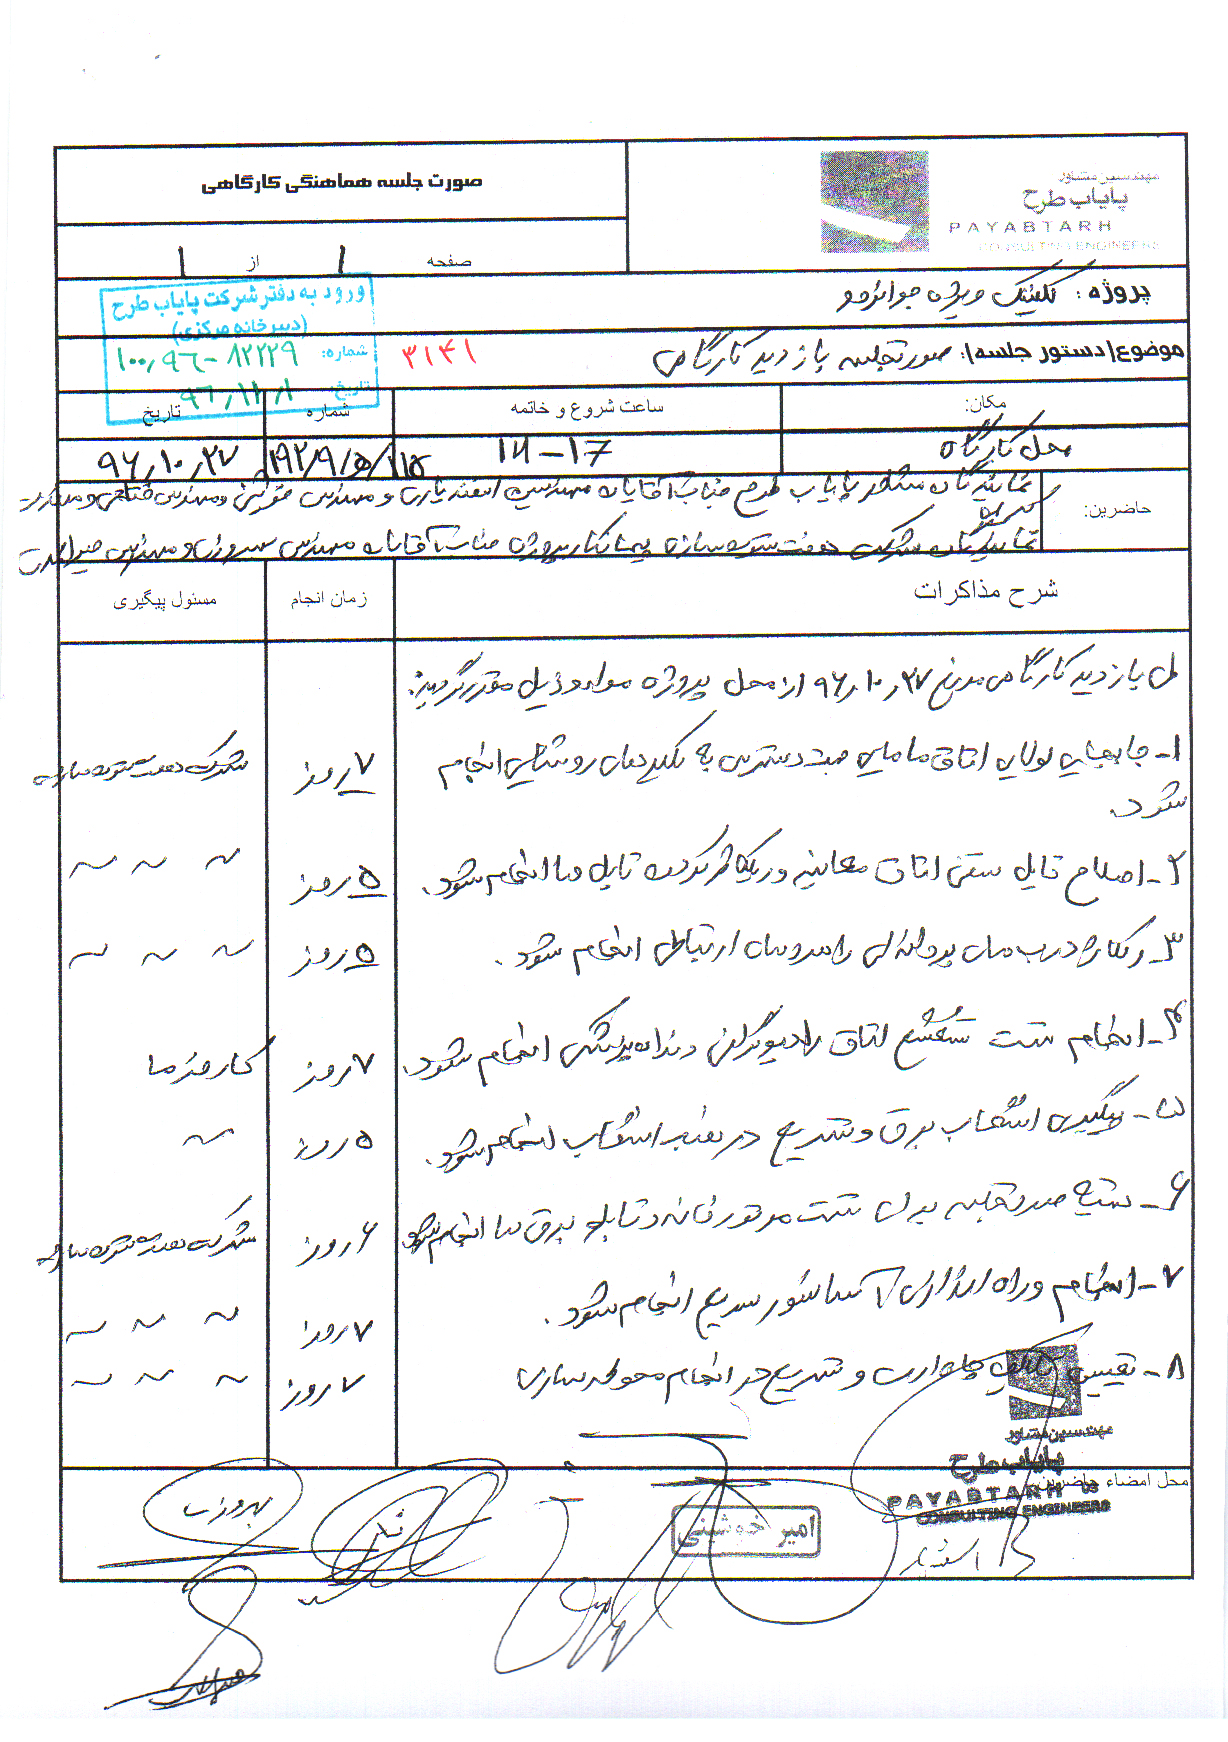 صورت جلسه هماهنگی کارگاهی
مهندسین مشاور
پایاب طرح
PAYABTARH
CONSULTING ENGINEERS
صفحه ۱ از ۱
پروژه : کلینیک ویژه جوانرود
ورود به دفتر شرکت پایاب طرح
(دبیرخانه مرکزی)
شماره: ۱۰۰٫۹۶-۸۲۲۲۹
تاریخ: ۹۶٫۱۱٫۱
موضوع(دستور جلسه): صورتجلسه بازدید کارگاهی
۳۱۴۱
مکان: ساعت شروع و خاتمه شماره تاریخ
محل کارگاه ۱۴-۱۷ ۱۹۲/۹/۵/۱۱۵ ۹۶٫۱۰٫۲۷
حاضرین:
نمایندگان مشاور پایاب طرح جناب آقایان مهندسین اسفندیاری و مهندس و مهندس فتاحی و مهندس
نمایندگان شرکت پیمانکار پروژه جناب آقایان مهندس و مهندس
شرح مذاکرات زمان انجام مسئول پیگیری
بازدید کارگاهی مورخ ۹۶٫۱۰٫۲۷ از محل پروژه موارد ذیل مقرر گردید:
۱- جابجایی لولای اتاق مامایی جهت دسترسی به کلیدهای روشنایی انجام ۷ روز شرکت
شود.
۲- اصلاح تایل سقفی اتاق معاینه و رگلاژ کردن تایل ها انجام شود. ۵ روز ~ ~ ~
۳- رگلاژ درب های راهروهای ارتباطی انجام شود. ۵ روز ~ ~ ~
۴- انجام تست تشعشع اتاق رادیوگرافی دندانپزشکی انجام شود. ۷ روز کارفرما
۵- پیگیری انشعاب برق و تسریع در نصب انشعاب انجام شود. ۵ روز ~
۶- تهیه صورتجلسه برای تست موتورخانه و تابلو برق ها انجام شود. ۶ روز شرکت
۷- انجام و راه اندازی آسانسور سریع انجام شود. ۷ روز ~ ~ ~
۸- تعیین و تسریع در انجام محوطه سازی ۷ روز ~ ~ ~
محل امضاء حاضرین:
مهندسین مشاور
پایاب طرح
PAYABTARH
CONSULTING ENGINEERS
امیر خوشبینی